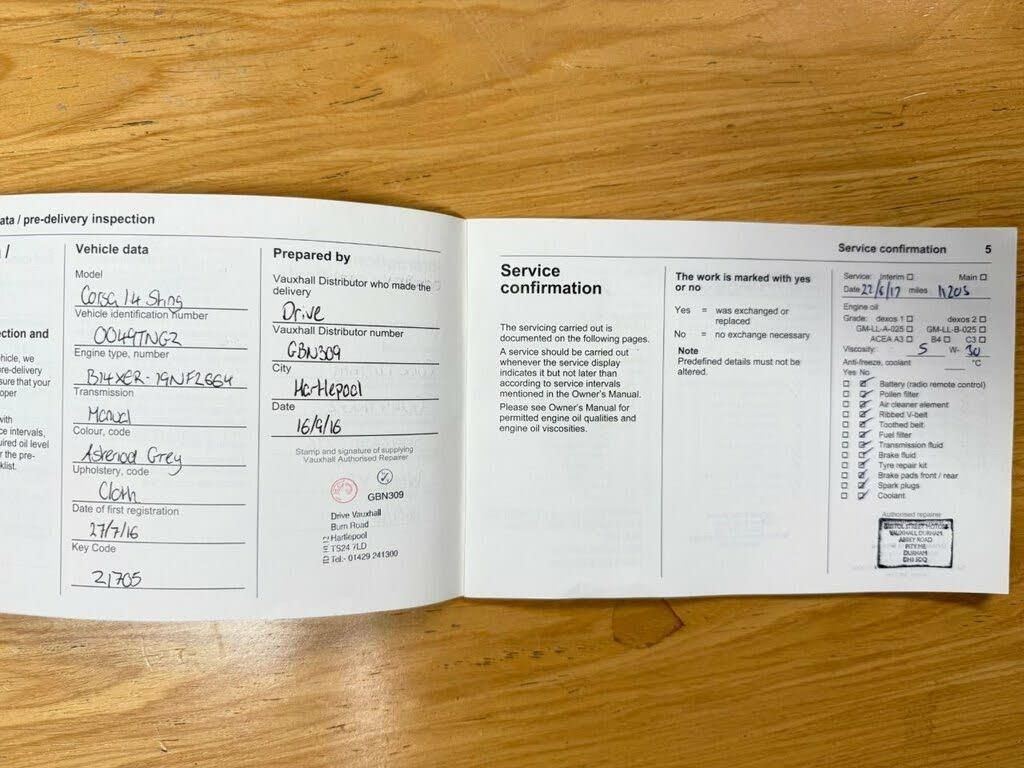 ata / pre-delivery inspection
/
ection and
hicle, we
re-delivery
sure that your
oper
with
ce intervals,
uired oil level
r the pre-
klist.
Vehicle data
Model
Corsa 1.4 Sting
Vehicle identification number
0049TNG2
Engine type, number
B14XER-19NF2664
Transmission
Manual
Colour, code
Asteriod Grey
Upholstery, code
Cloth
Date of first registration
27/7/16
Key Code
21705
Prepared by
Vauxhall Distributor who made the
delivery
Drive
Vauxhall Distributor number
GBN309
City
Hartlepool
Date
16/9/16
Stamp and signature of supplying
Vauxhall Authorised Repairer
GBN309
Drive Vauxhall
Burn Road
Hartlepool
TS24 7LD
Tel:- 01429 241300
Service confirmation 5
Service
confirmation
The servicing carried out is
documented on the following pages.
A service should be carried out
whenever the service display
indicates it but not later than
according to service intervals
mentioned in the Owner's Manual.
Please see Owner's Manual for
permitted engine oil qualities and
engine oil viscosities.
The work is marked with yes
or no
Yes = was exchanged or
replaced
No = no exchange necessary
Note
Predefined details must not be
altered.
Service: Interim Main
Date 22/6/17 miles 11205
Engine oil
Grade: dexos 1 dexos 2
GM-LL-A-025 GM-LL-B-025
ACEA A3 B4 C3
Viscosity: 5 W- 30
Anti-freeze, coolant °C
Yes No
Battery (radio remote control)
Pollen filter
Air cleaner element
Ribbed V-belt
Toothed belt
Fuel filter
Transmission fluid
Brake fluid
Tyre repair kit
Brake pads front / rear
Spark plugs
Coolant
Authorised repairer
BRISTOL STREET MOTORS
VAUXHALL DURHAM
ABBEY ROAD
PITY ME
DURHAM
DH1 5DQ